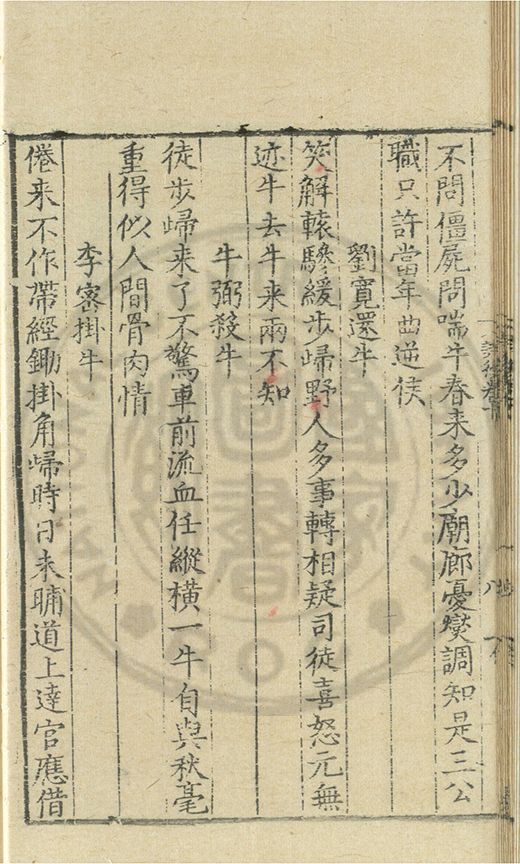 不問僵屍問喘牛春来多少廟廊憂爕調知是三公
職只許當年曲逆侯
劉寛還牛
笑解轅驂緩步歸野人多事轉相疑司徒喜怒元無
迹牛去牛来兩不知
牛弼殺牛
徒步歸来了不驚車前流血任縱橫一牛自與秋毫
重得似人間骨肉情
李宻掛牛
倦来不作帶經鋤掛角歸時日未晡道上達官應借